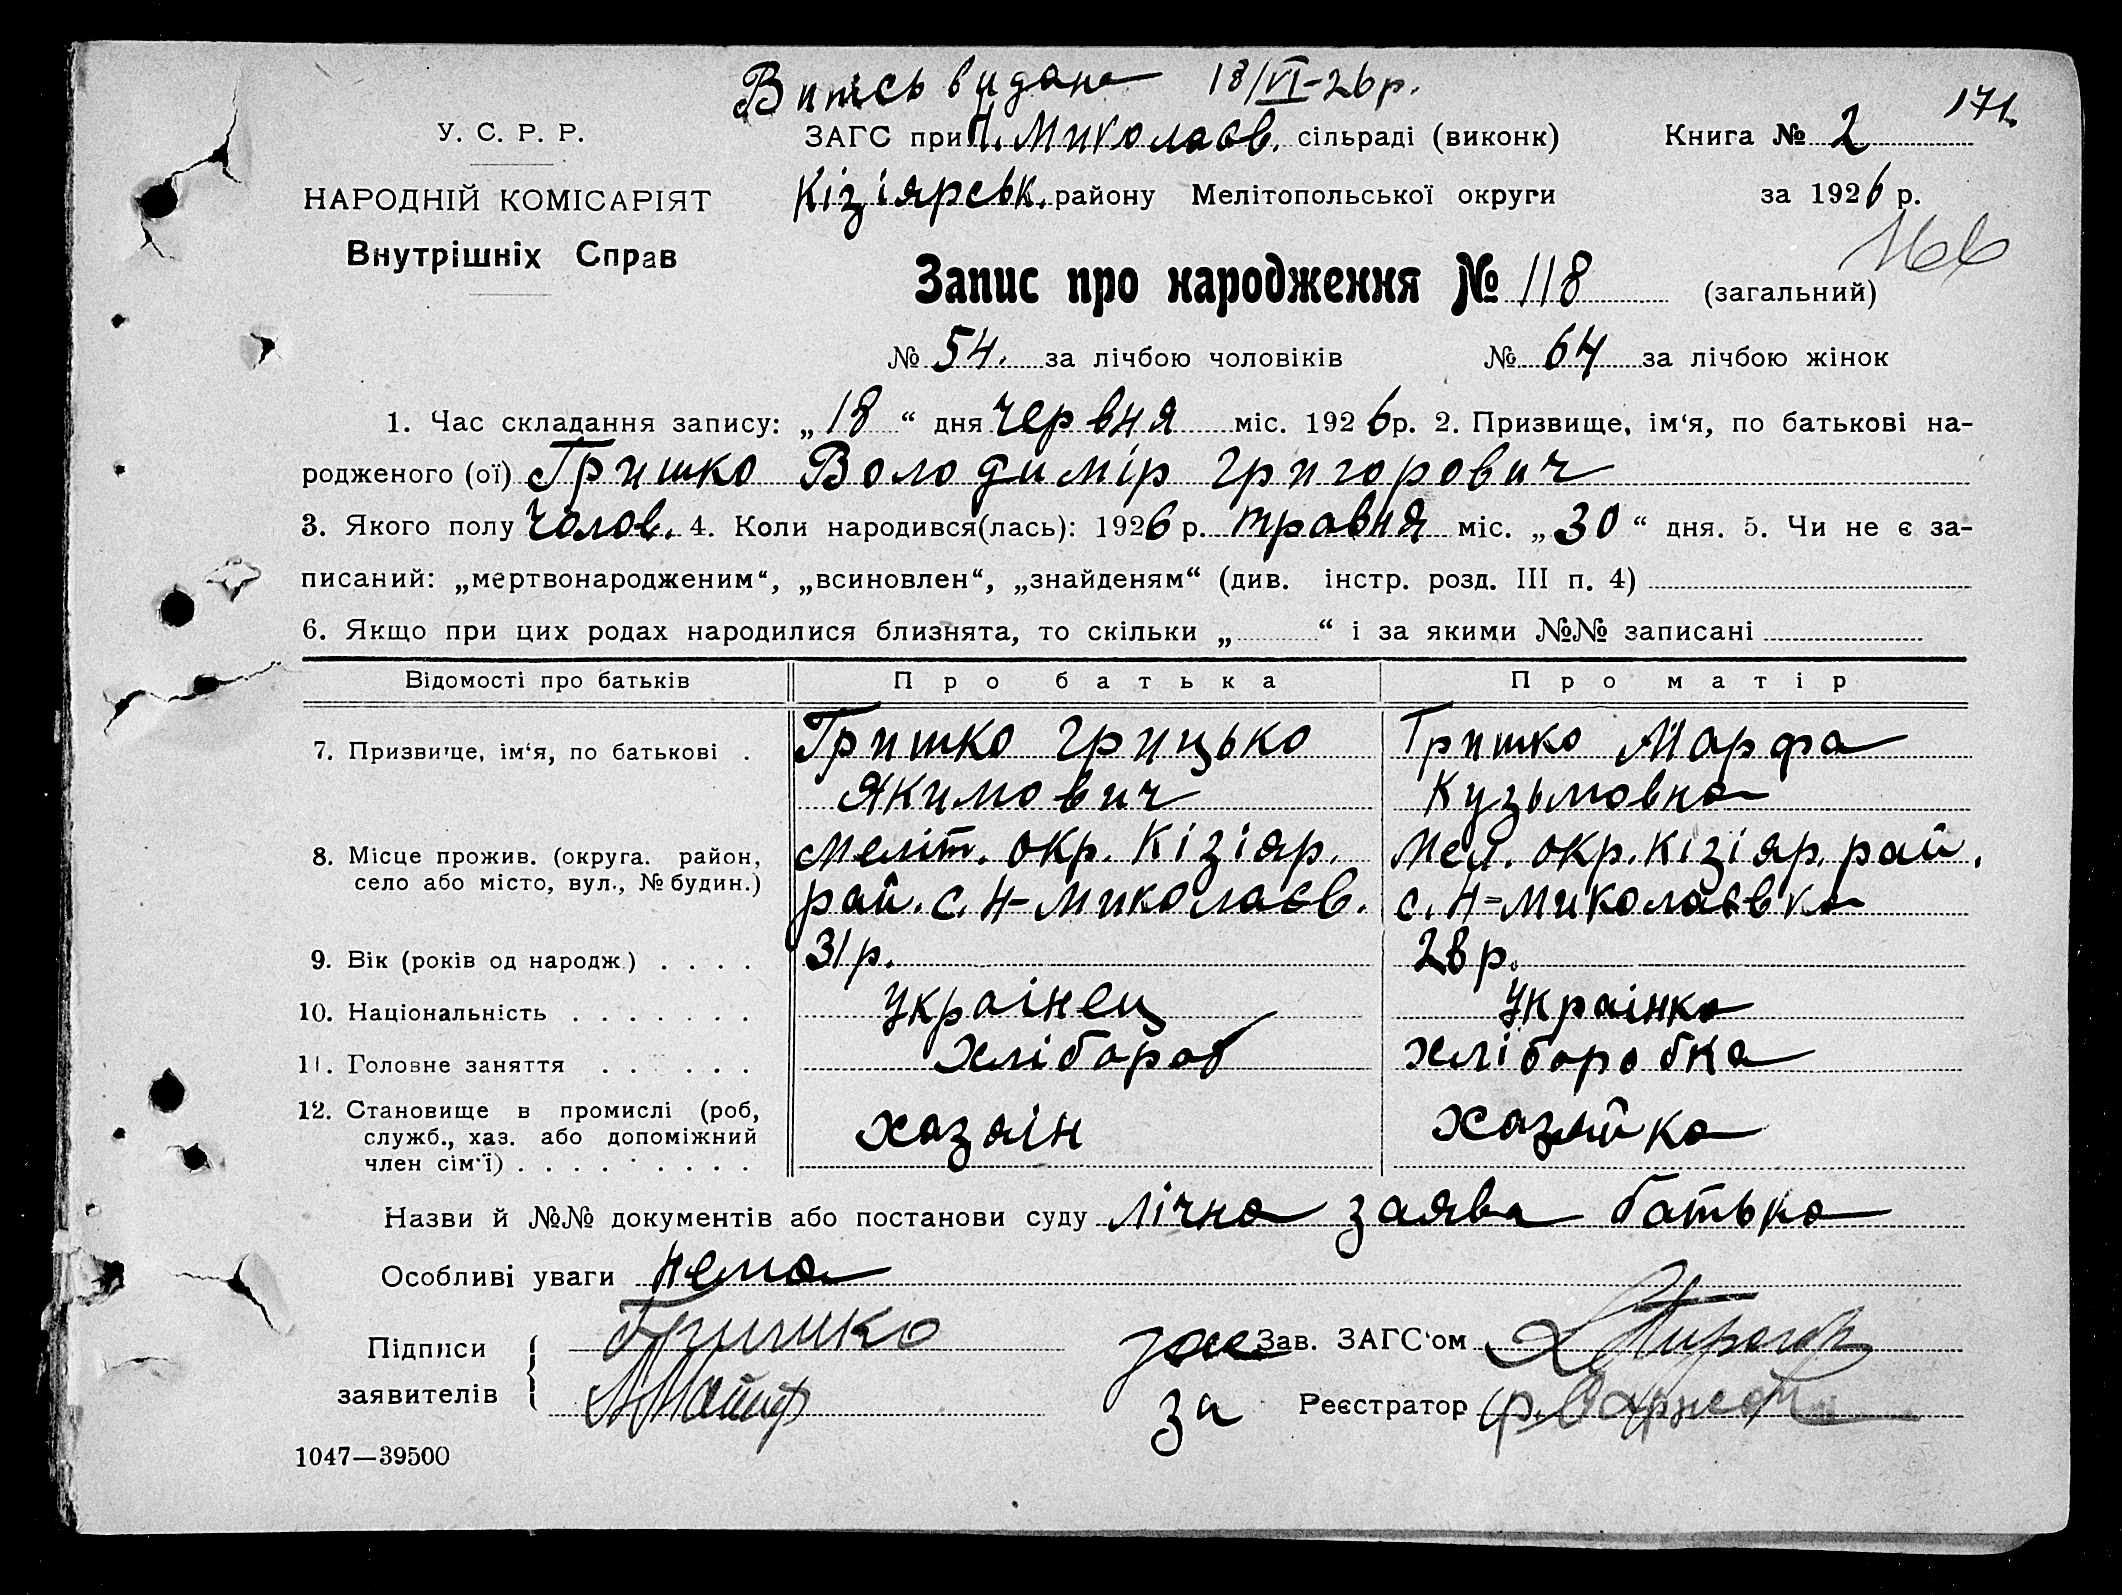 Витсь видана 18/VI-26 р.
171.
У. С. Р. Р.
ЗАГС при Н. Миколаєв. сільраді (виконк)
Книга № 2
НАРОДНІЙ КОМІСАРІЯТ
Кізіярськ. району Мелітопольської округи
за 1926 р.
Внутрішніх Справ
166
Запис про народження № 118 (загальний)
№ 54. за лічбою чоловіків № 64 за лічбою жінок
1. Час складання запису: „18“ дня червня міс. 1926 р. 2. Призвище, ім‘я, по батькові на-
родженого (ої) Гришко Володимір Григорович
3. Якого полу чолов. 4. Коли народився(лась): 1926 р. травня міс. „30“ дня. 5. Чи не є за-
писаний: „мертвонародженим“, „всиновлен“, „знайденям“ (див. інстр. розд. III п. 4)
6. Якщо при цих родах народилися близнята, то скільки „ “ і за якими №№ записані
Відомості про батьків Про батька Про матір
7. Призвище, ім‘я, по батькові . Гришко Грицько Гришко Марфа
Якимович Кузьмовна
8. Місце прожив. (округа. район, Меліт. окр. Кізіяр. Мел. окр. Кізіяр. рай.
село або місто, вул., № будин.) рай. с. Н-Миколаєв. с. Н-Миколаєвка
9. Вік (років од народж.) . . . . 31 р. 28 р.
10. Національність . . . . . . . українец українка
11. Головне заняття . . . . . . хлібороб хліборобка
12. Становище в промислі (роб,
служб., хаз. або допоміжний хазяін хазяйка
член сім‘ї) . . . . . . . . .
Назви й №№ документів або постанови суду лічна заява батька
Особливі уваги нема
Підписи Гришко Зав. ЗАГС‘ом
заявителів за Реєстратор
1047—39500